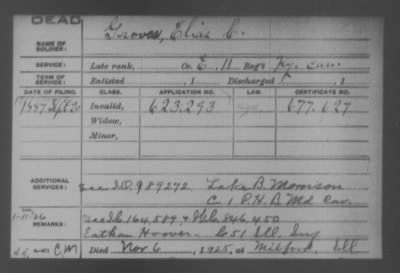 DEAD
Groves, Elias C.
NAME OF SOLDIER:
SERVICE: Late rank, Co. E, 11 Reg't Ky. Cav.
TERM OF SERVICE: Enlisted , 1 Discharged , 1
DATE OF FILING. CLASS. APPLICATION NO. LAW. CERTIFICATE NO.
1887 Invalid, 623.293 677.627
Widow,
Minor,
ADDITIONAL SERVICES: see I.O. 989272 Lake B. Morrison
C 1 P.H.B. Md Cav.
REMARKS: see I.C. 164.589 & W.C. 846.450
Eathan Hoover - C 51 Ill. Inf
Died Nov 6, 1925, at Milford, Ill